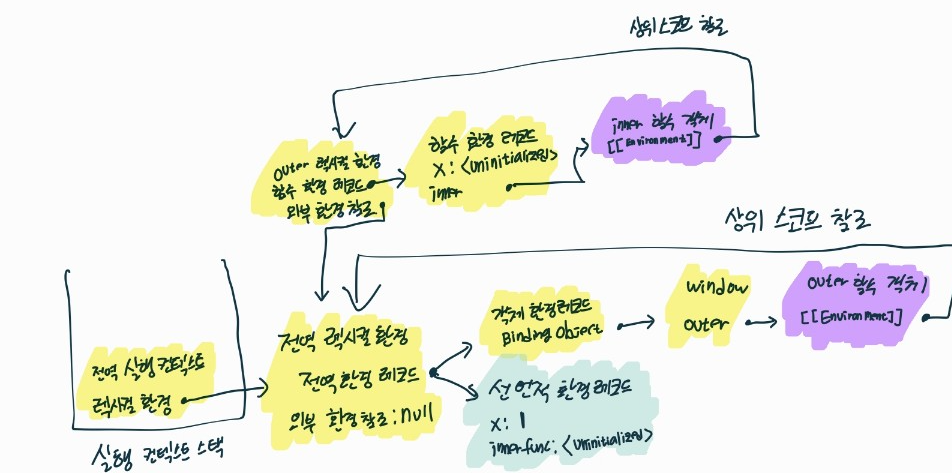 상위 스코프 참조
outer 렉시컬 환경
함수 환경 레코드
외부 환경 참조
함수 환경 레코드
x: <uninitialized>
inner
inner 함수 객체
[[Environment]]
상위 스코프 참조
전역 실행 컨텍스트
렉시컬 환경
실행 컨텍스트 스택
전역 렉시컬 환경
전역 환경 레코드
외부 환경 참조: null
객체 환경 레코드
Binding Object
window
outer
outer 함수 객체
[[Environment]]
선언적 환경 레코드
x: 1
innerfunc: <uninitialized>